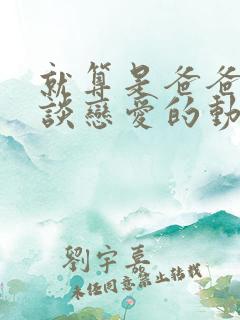 就算是爸爸
談戀愛的動
劉宇熹
未经同意禁止转载